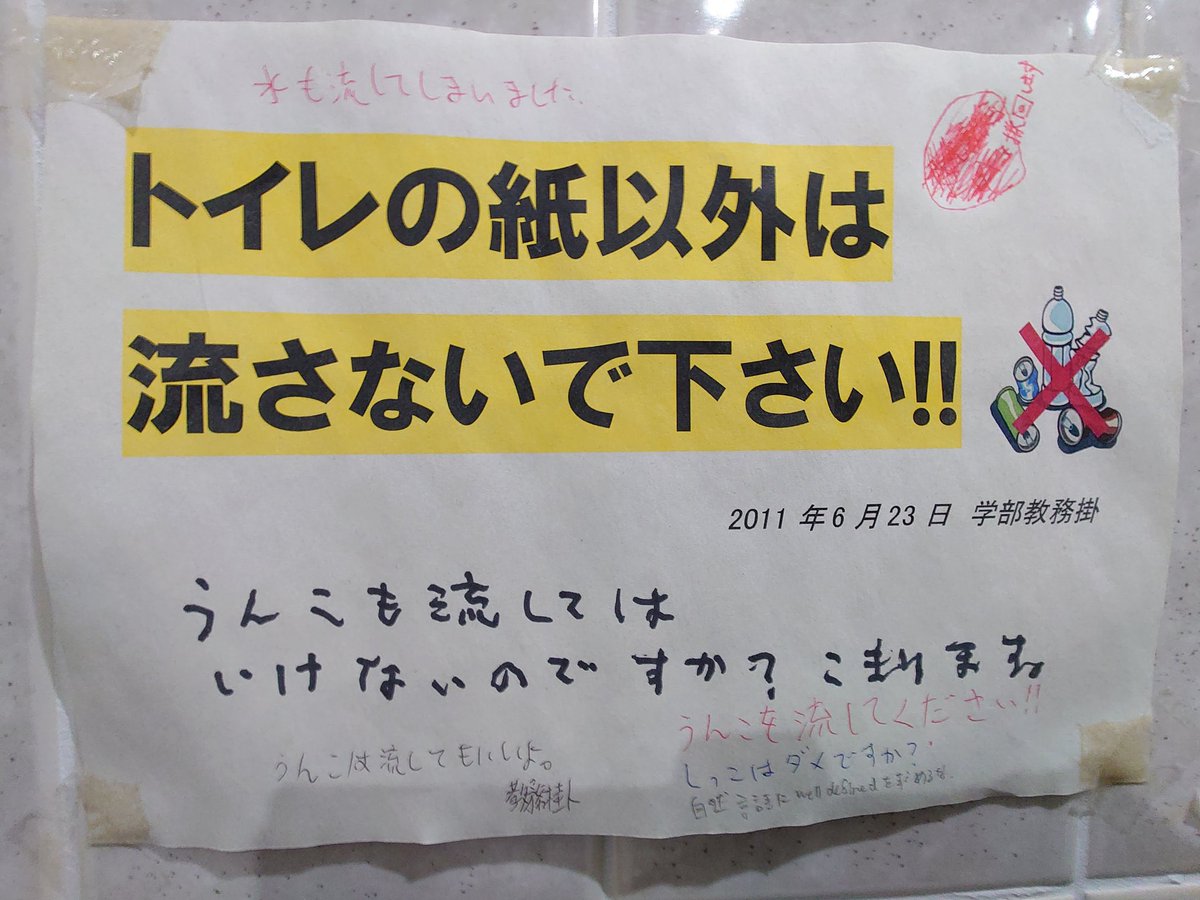 水も流してしまいました。
トイレの紙以外は
流さないで下さい!!
2011 年 6 月 23 日 学部教務掛
うんこも流しては
いけないのですか? こまります。
うんこを流してください!!
うんこは流してもいいよ。
教務掛
しっこはダメですか?
自然言語に well defined を求めるな。